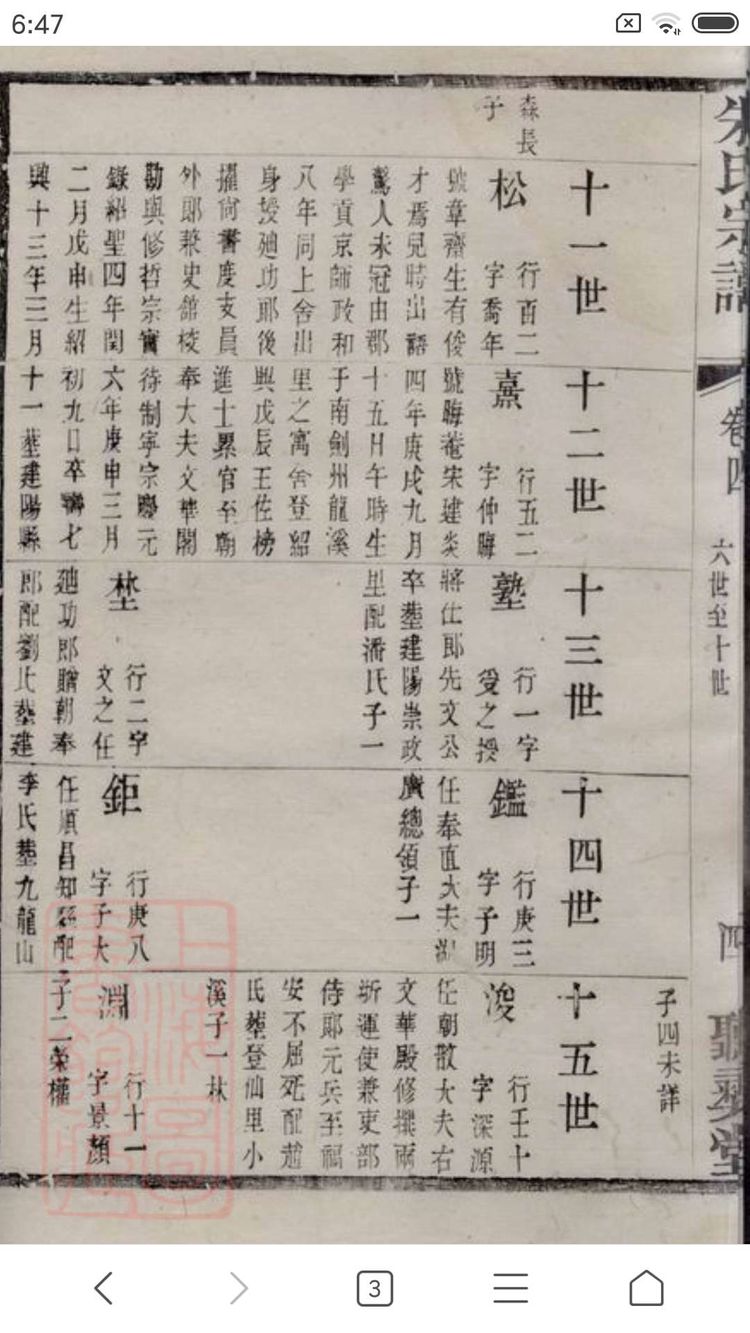 6:47
朱氏宗譜
卷四
六世至十世
四
子四未詳
十一世
森長
子
松
行百二
字喬年
號韋齋生有俊
才焉兒時出語
驚人未冠由郡
學貢京師政和
八年同上舍出
身授廸功郎後
擢尚書度支員
外郎兼史舘校
勘與修哲宗實
錄紹聖四年閏
二月戊申生紹
興十三年三月
十二世
熹
行五二
字仲晦
號晦菴宋建炎
四年庚戌九月
十五日午時生
于南劍州龍溪
里之寓舍登紹
興戊辰王佐榜
進士累官至朝
奉大夫文華閣
待制寧宗慶元
六年庚申三月
初九日卒壽七
十一塟建陽縣
十三世
塾
行一字
受之授
將仕郎先文公
卒塟建陽崇政
里配潘氏子一
埜
行二字
文之任
廸功郎贈朝奉
郎配劉氏塟建
十四世
鑑
行庚三
字子明
任奉直大夫湖
廣總領子一
鉅
行庚八
字子大
任順昌知縣配
李氏塟九龍山
十五世
浚
行壬十
字深源
任朝散大夫右
文華殿修撰兩
浙運使兼吏部
侍郎元兵至福
安不屈死配趙
氏塟登仙里小
溪子一林
淵
行十一
字景顏
子二榮樻
3